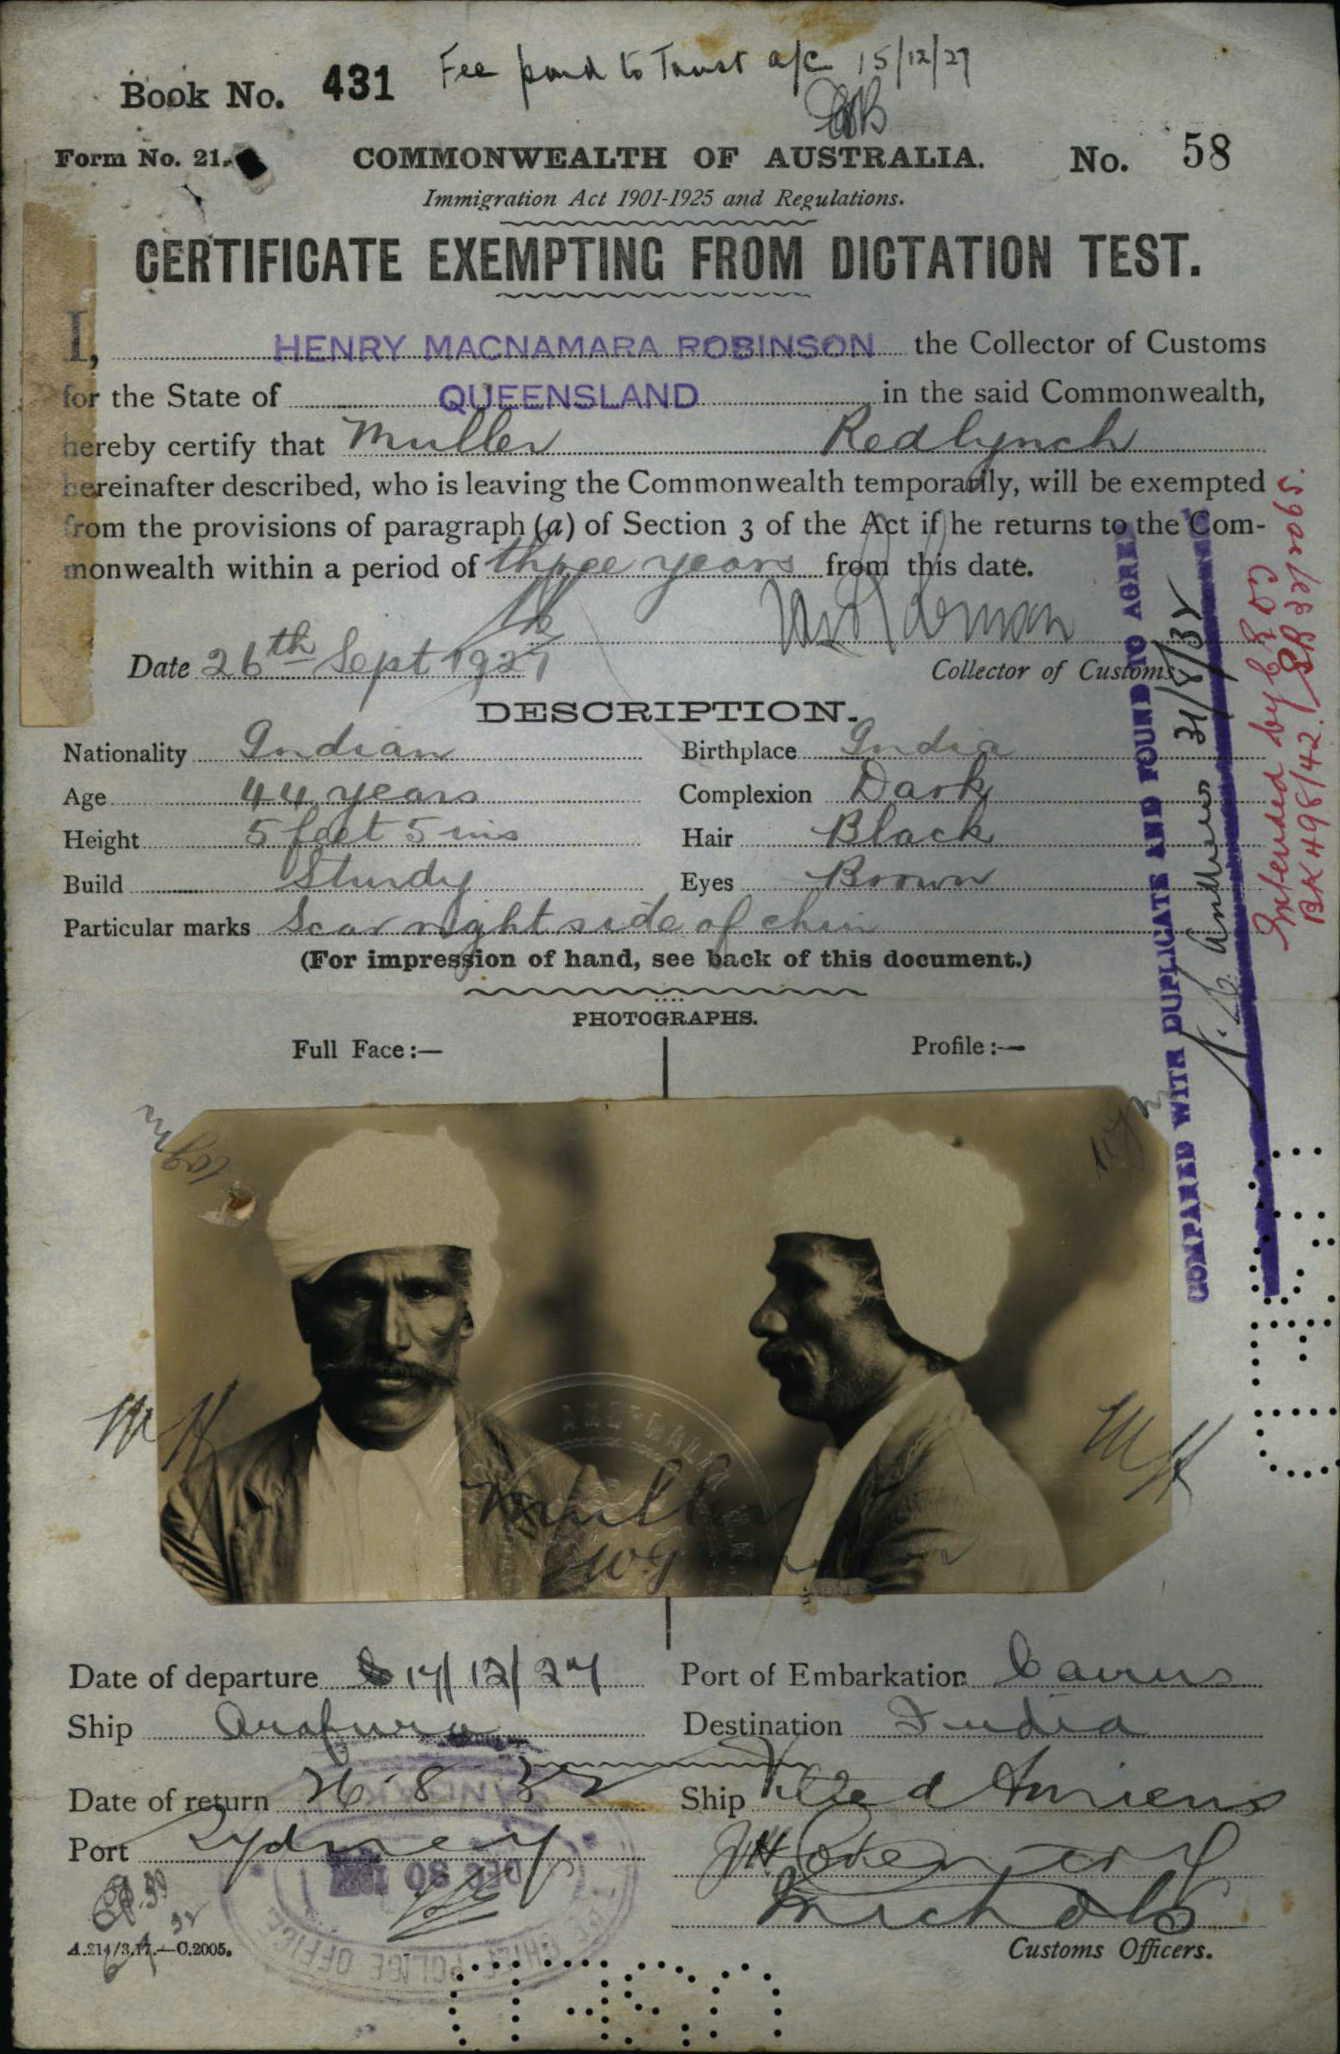 Fee paid to Trust a/c 15/12/27
Book No. 431
Form No. 21. COMMONWEALTH OF AUSTRALIA. No. 58
Immigration Act 1901-1925 and Regulations.
CERTIFICATE EXEMPTING FROM DICTATION TEST.
I, HENRY MACNAMARA ROBINSON the Collector of Customs
for the State of QUEENSLAND in the said Commonwealth,
hereby certify that Muller Redlynch
hereinafter described, who is leaving the Commonwealth temporarily, will be exempted
from the provisions of paragraph (a) of Section 3 of the Act if he returns to the Com-
monwealth within a period of three years from this date.
Date 26th Sept 1927 Collector of Customs
DESCRIPTION.
Nationality Indian Birthplace India
Age 44 years Complexion Dark
Height 5 feet 5 ins Hair Black
Build Sturdy Eyes Brown
Particular marks Scar right side of chin
(For impression of hand, see back of this document.)
PHOTOGRAPHS.
Full Face:— Profile:—
Date of departure 17/12/27 Port of Embarkation Cairns
Ship Arafura Destination India
Date of return 26.8.32 Ship Ville d Amiens
Port Sydney
Nichols
A.214/3.17.—C.2005. Customs Officers.
COMPARED WITH DUPLICATE AND FOUND TO AGREE
Andrews 31/8/32
Extended by
DEC 30
CHIEF POLICE OFFICE